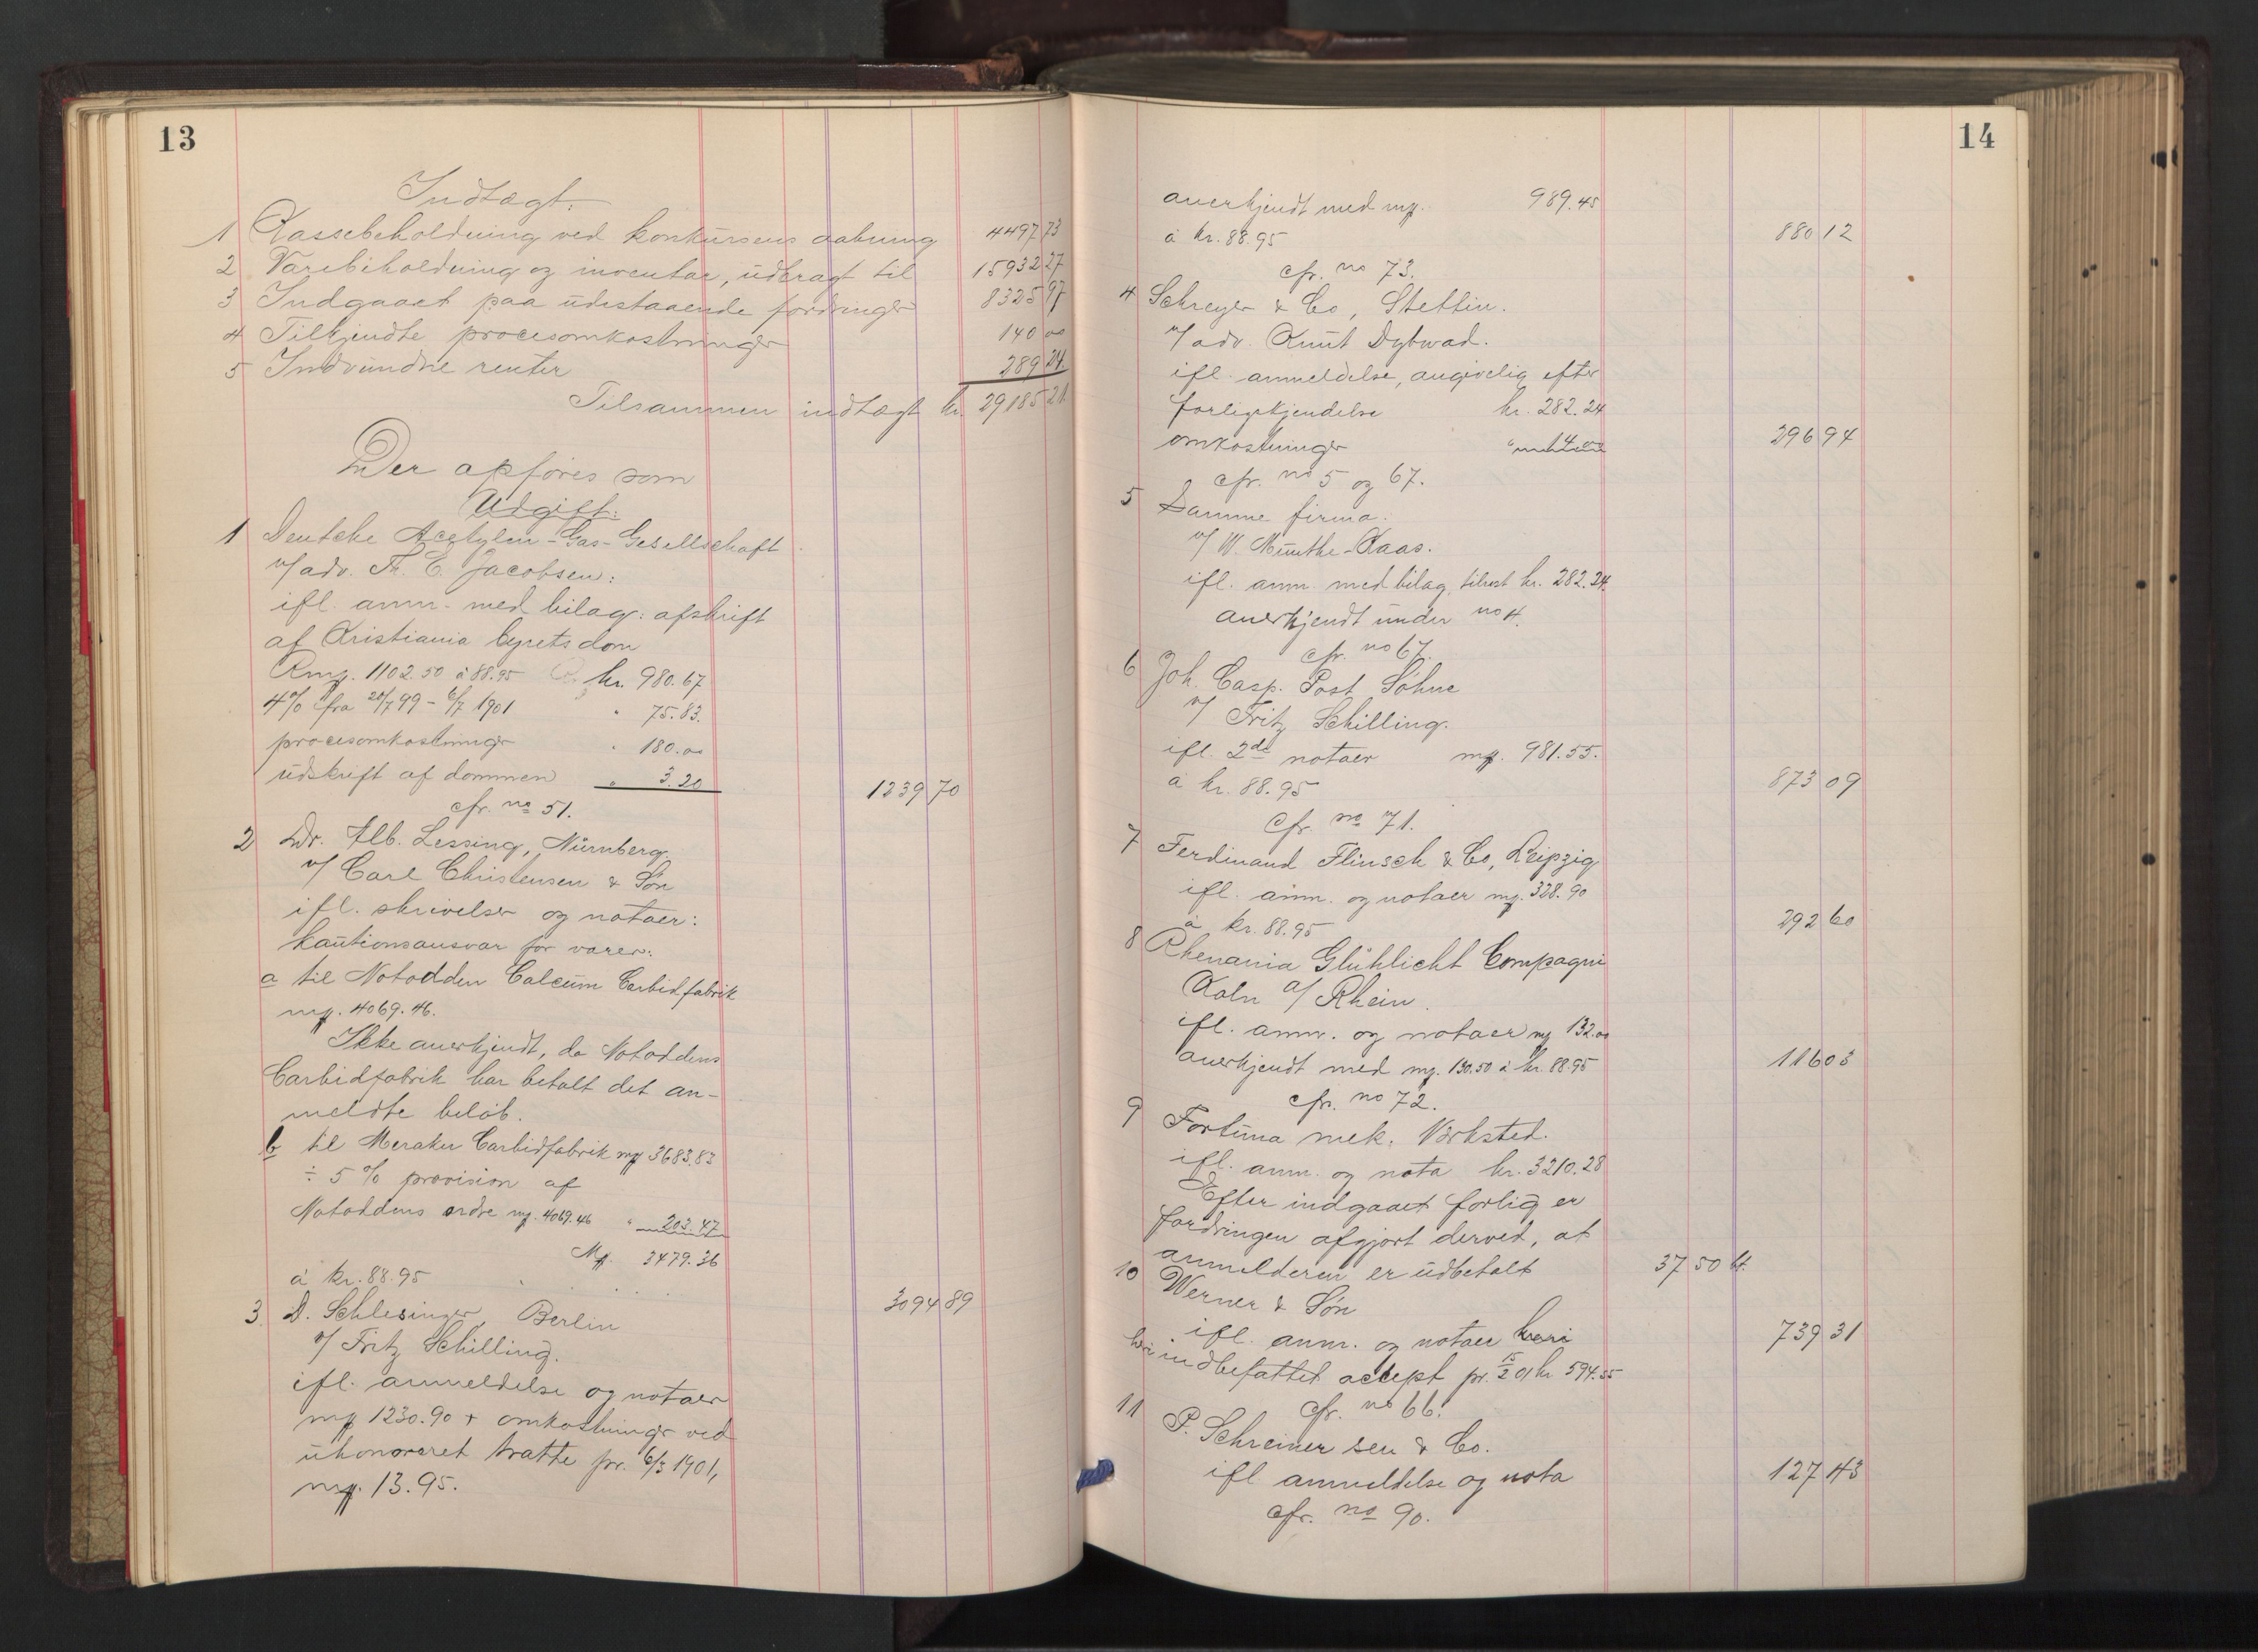 13
Indtægt:
1 Kassebeholdning ved konkursens aabning 4497 73
2 Varebeholdning og inventar, udbragt til 15932 27
3 Indgaaet paa udestaaende fordringer 8325 97
4 Tilkjendte procesomkostninger 140 00
5 Indvundne renter 289 24
Tilsammen indtægt kr. 29185 21
Der opføres som
Udgift:
1 Deutche Acetylen-Gas-Gesellschaft
v/ adv. Th. E. Jacobsen:
ifl. anm. med bilag: afskrift
af Kristiania byrets dom
Rmg. 1102.50 à 88.95 kr. 980.67
4% fra 20/7 99 - 6/7 1901 " 75.83.
procesomkostninger " 180.00
udskrift af dommen " 3.20 1239 70
cfr. no 51.
2 Dr. Alb. Lessing, Nürnberg.
v/ Carl Christensen & Søn
ifl. skrivelser og notaer:
kautionsansvar for varer:
a til Notodden Calcium Carbidfabrik
mg. 4069.46.
Ikke anerkjendt, da Notoddens
Carbidfabrik har betalt det an-
meldte beløb.
b til Meraker Carbidfabrik mg 3683.83
÷ 5% provision af
Notoddens ordre mg. 4069.46 " 203.47
Mg. 3479.36
à kr. 88.95 3094 89
3 D. Schlesinger, Berlin
v/ Fritz Schilling.
ifl. anmeldelse og notaer
mg 1230.90 + omkostninger ved
uhonoreret tratte pr. 6/3 1901,
mg. 13.95.
14
anerkjendt med mg. 989.45
à kr. 88.95 880 12
cfr. no 73.
4 Schreyer & Co, Stettin.
v/ adv. Knut Dybwad.
ifl. anmeldelse, angivelig efter
forligskjendelse kr. 282.24
omkostninger " 14.00 296 94
cfr. no 5 og 67.
5 Samme firma:
v/ W. Munthe-Kaas.
ifl. anm. med bilag, tilust kr. 282.24.
anerkjendt under no 4.
cfr. no 67.
6 Joh. Casp. Post Söhne
v/ Fritz Schilling.
ifl. 2de notaer mg. 981.55.
à kr. 88.95 873 09
cfr. no 71.
7 Ferdinand Flinsch & Co, Leipzig
ifl. anm. og notaer mg. 328.90
à kr. 88.95 292 60
8 Rhenania Glühlicht Compagni
Køln a/ Rhein.
ifl. anm. og notaer mg 132.00
anerkjendt med mg. 130.50 à kr. 88.95 116 03
cfr. no 72.
9 Fortuna mek. Værksted.
ifl. anm. og nota kr. 3210.28
Efter indgaaet forlig er
fordringen afgjort derved, at
anmelderen er udbetalt 37 50 bt.
10 Werner & Søn
ifl. anm. og notaer heri
heri indbefattet accept pr. 15/2 01 kr 594.55 739 31
cfr. no 66.
11 P. Schreiner sen & Co.
ifl anmeldelse og nota 127 43
cfr. no 90.